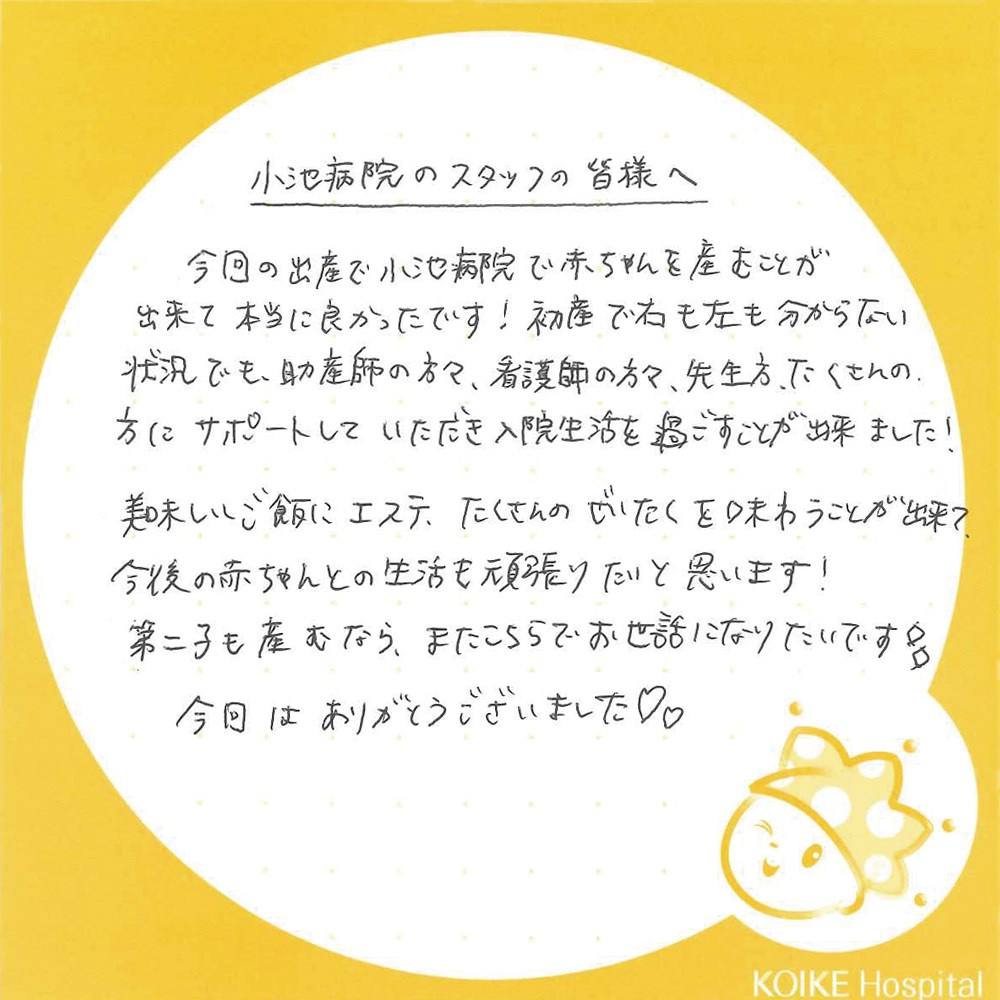 小池病院のスタッフの皆様へ
今回の出産で小池病院で赤ちゃんを産むことが
出来て本当に良かったです！初産で右も左も分からない
状況でも、助産師の方々、看護師の方々、先生方、たくさんの
方にサポートしていただき入院生活を過ごすことが出来ました！
美味しいご飯にエステ、たくさんのぜいたくを味わうことが出来て、
今後の赤ちゃんとの生活も頑張りたいと思います！
第二子も産むなら、またこちらでお世話になりたいです
今回はありがとうございました♡♡
KOIKE Hospital